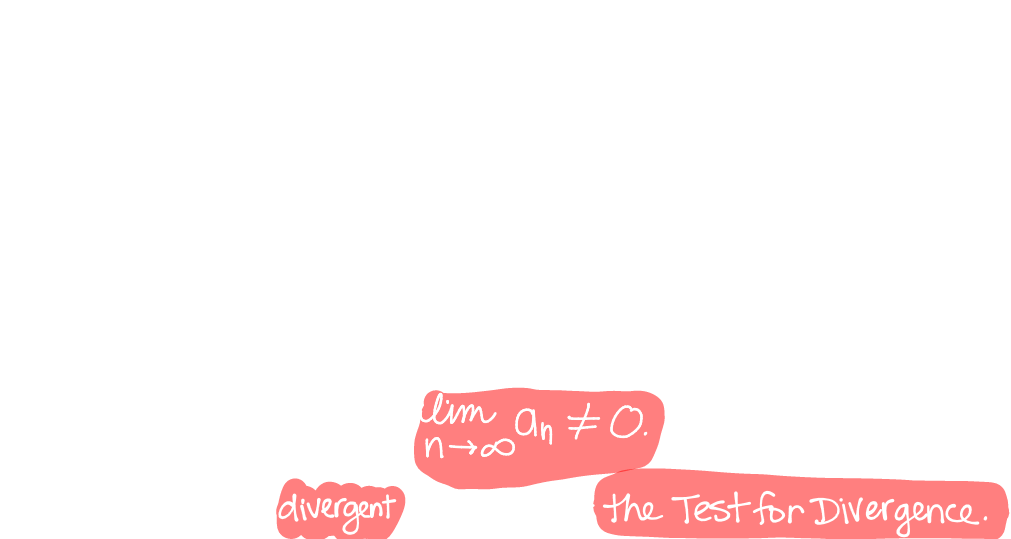 lim n→∞ aₙ ≠ 0.
divergent the Test for Divergence.